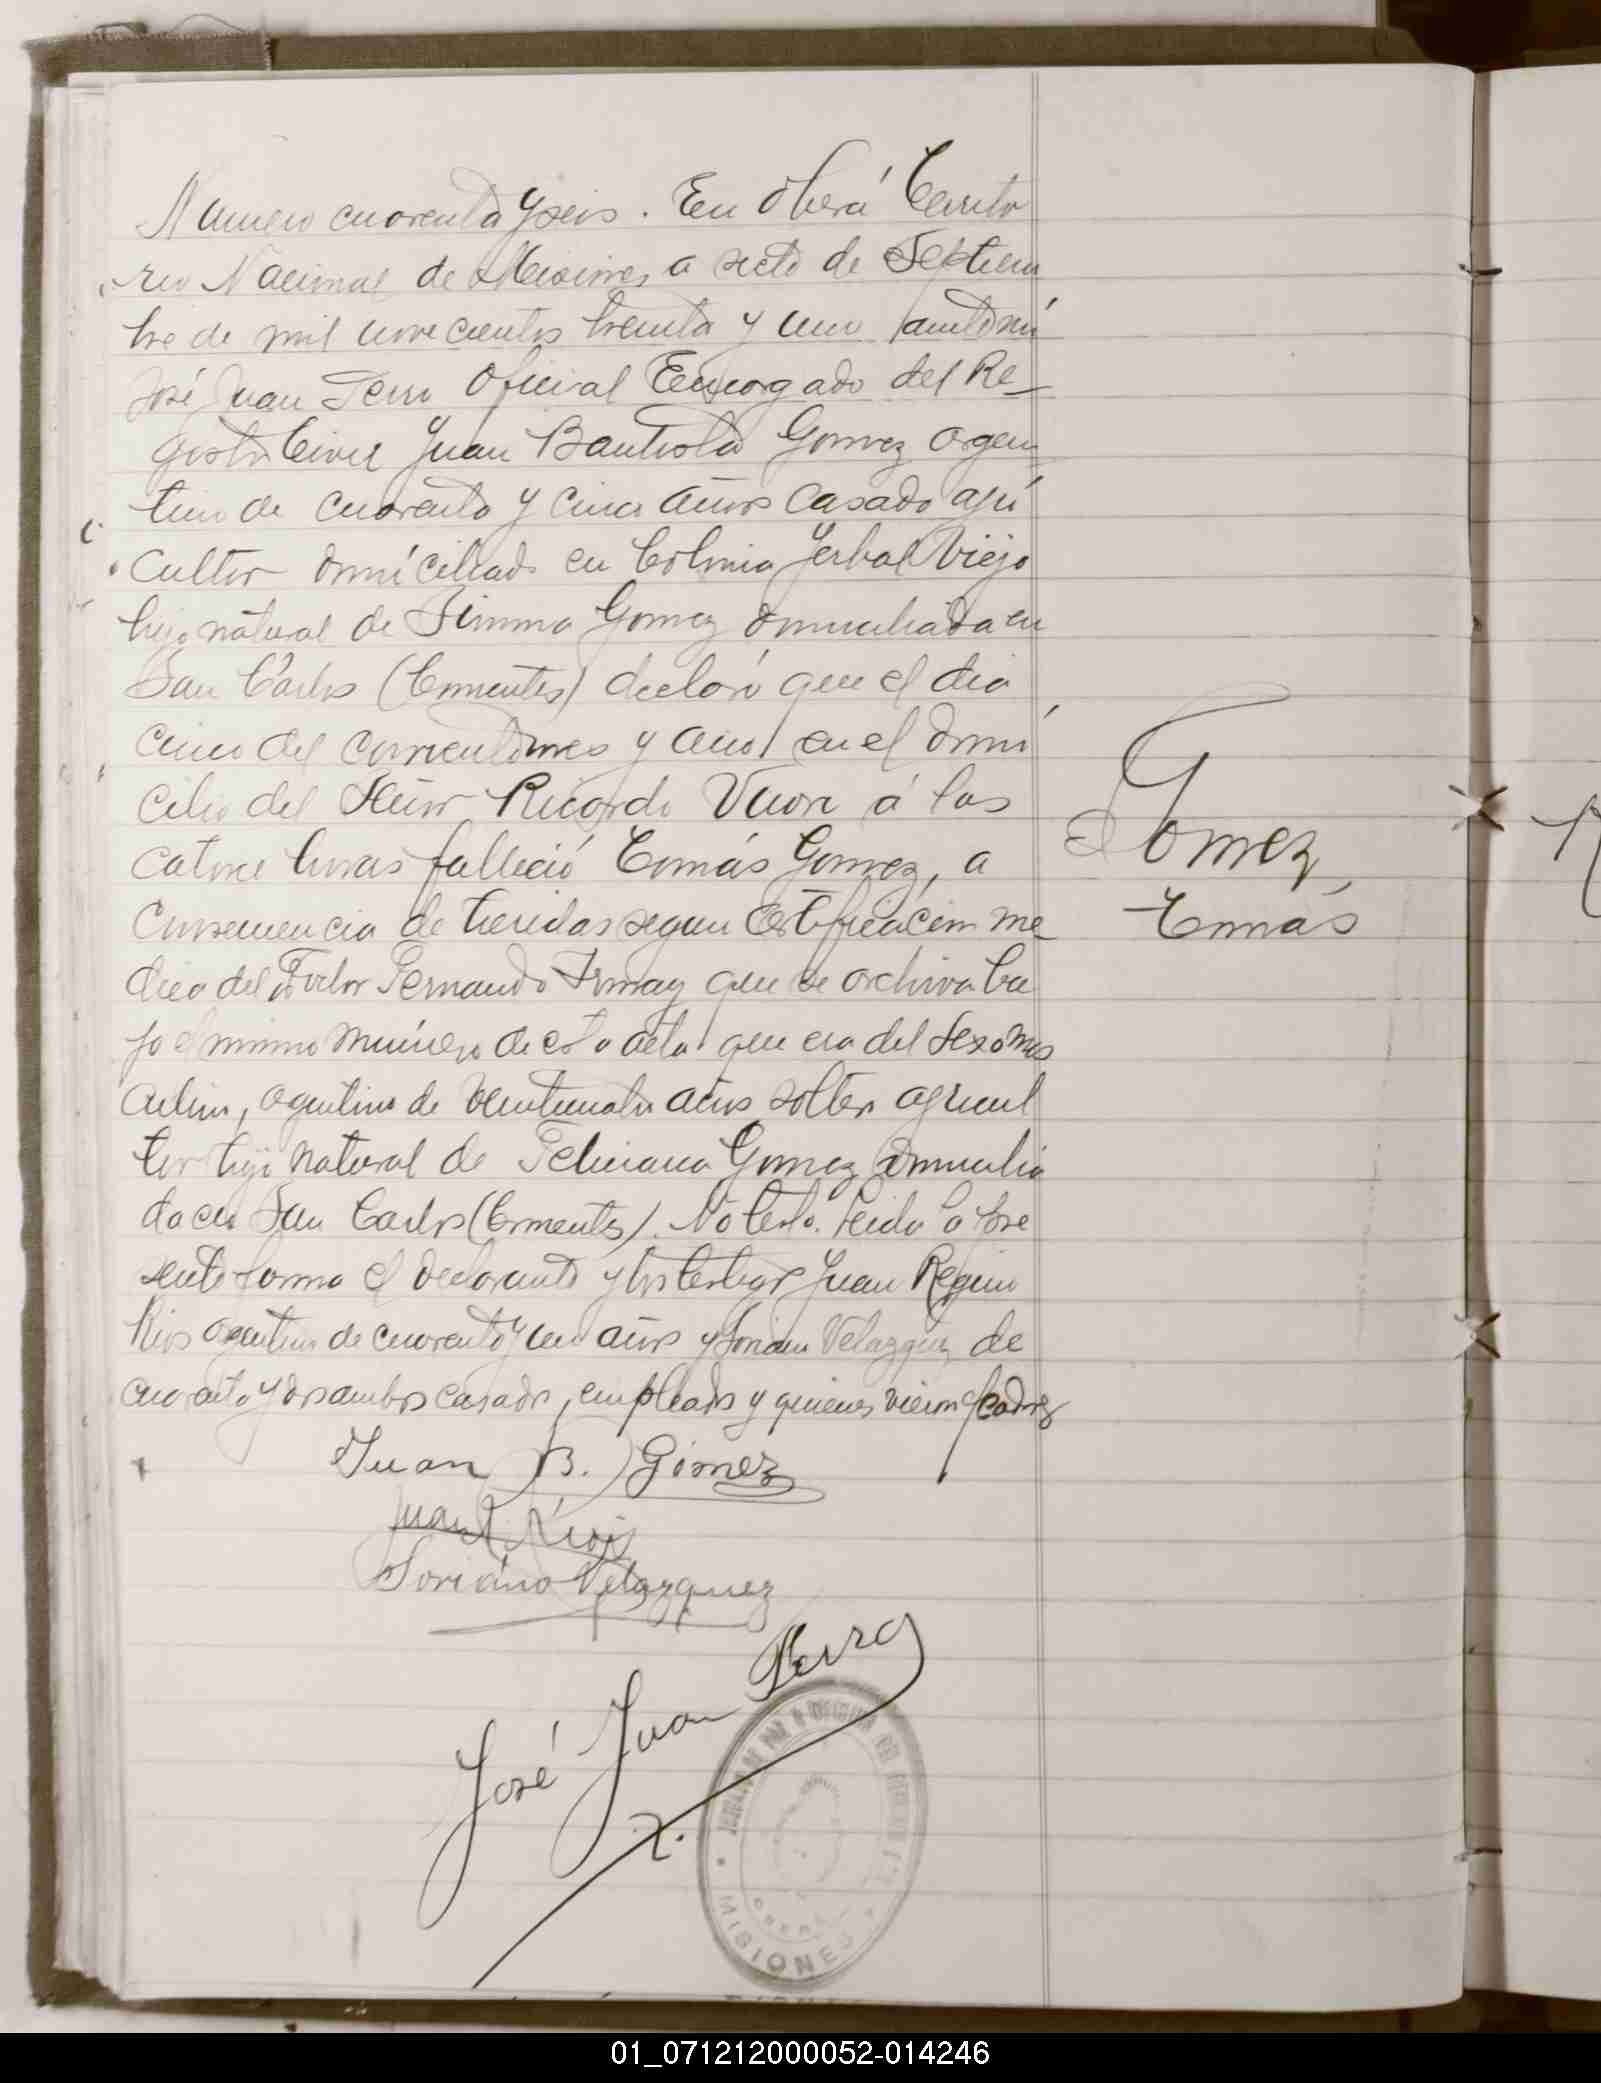 Numero cuarenta y seis. En Oberá Territo
rio Nacional de Misiones a siete de Septiem
bre de mil novecientos treinta y uno, ante mi
José Juan Perro Oficial Encargado del Re-
gistro Civil Juan Bautista Gomez argen
tino de cuarenta y cinco años casado agri
cultor domiciliado en Colonia Yerbal Viejo
hijo natural de Gomez domiciliada en
San Carlos (Corrientes) declaró que el dia
cinco del corriente mes y año en el domi
cilio del Señor Ricardo á las
catorce horas falleció Tomás Gomez, a
consecuencia de heridas segun certificacion me
dica del Doctor Fernando que se archiva ba
jo el mismo número de esta acta que era del sexo mas
culino, argentino de veinticuatro años soltero agricul
tor hijo natural de Feliciana Gomez domicilia
da en San Carlos (Corrientes). No testo. Leida la pre
sente firma el declarante y los testigos Juan Regino
Rios argentino de cuarenta y un años y Soriano Velazquez de
cuarenta y dos ambos casados, empleados y quienes vieron el cadaver
Gomez,
Tomás
Juan B. Gómez
Juan R. Rios
Soriano Velazquez
José Juan Perro
MISIONES
01_071212000052-014246